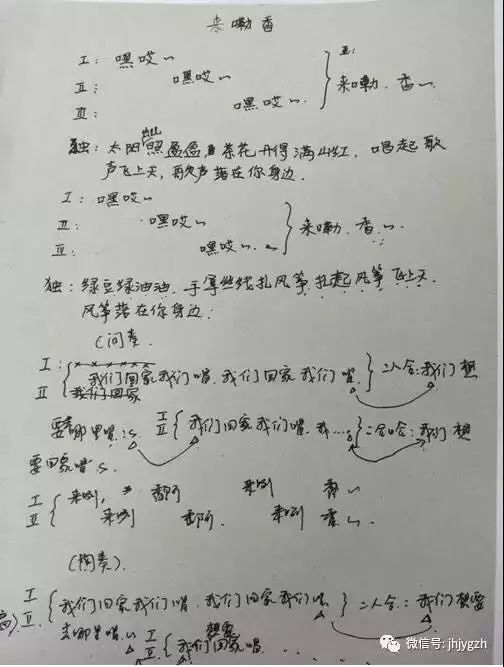 来嘞香
Ⅰ: 嘿哎~ Ⅲ:
Ⅱ: 嘿哎~ 来嘞. 香~
Ⅲ: 嘿哎~
独: 太阳出山照盈盈, 茶花开得满山红, 唱起歌
声飞上天, 歌声落在你身边.
Ⅰ: 嘿哎~
Ⅱ: 嘿哎~ 来嘞. 香~
Ⅲ: 嘿哎~
独: 绿豆绿油油. 手拿丝线扎风筝. 扎起风筝飞上天.
风筝落在你身边.
(间奏.
Ⅰ: 我们回家我们唱. 我们回家我们唱. 二人合: 我们想
Ⅱ 我们回家
要去哪里唱: Ⅰ Ⅱ 我们回家我们唱. 我…. 二合: 我们想
要回家唱
Ⅰ 来咧, 香阿 来咧 香~
Ⅱ 来咧 香阿. 来咧 香~.
(间奏).
Ⅰ Ⅱ. 我们回家我们唱 我们回家我们唱 二人合: 我们想要
去哪里唱. Ⅰ Ⅱ 我们想要回家唱.
微信号: jhjygzh